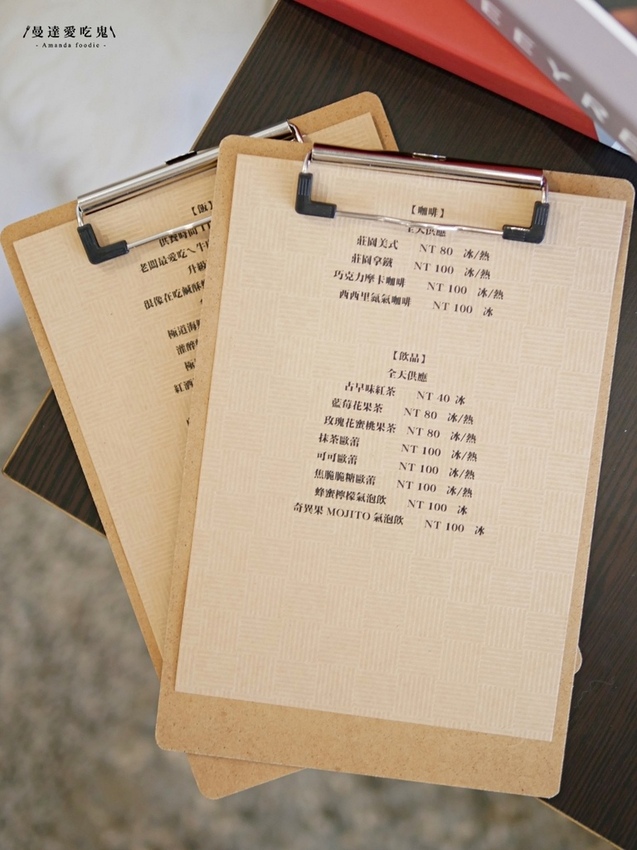 曼達愛吃鬼
- Amanda foodie -
EEYRE
【飯】
供餐時間 11
老闆最愛吃～牛
升級
很像在吃鹹酥
極道海
灌醉
極
【咖啡】
全天供應
莊園美式 NT 80 冰/熱
莊園拿鐵 NT 100 冰/熱
巧克力摩卡咖啡 NT 100 冰/熱
西西里氣氣咖啡 NT 100 冰
【飲品】
全天供應
古早味紅茶 NT 40 冰
藍莓花果茶 NT 80 冰/熱
玫瑰花蜜桃果茶 NT 80 冰/熱
抹茶歐蕾 NT 100 冰/熱
可可歐蕾 NT 100 冰/熱
焦脆脆糖歐蕾 NT 100 冰/熱
蜂蜜檸檬氣泡飲 NT 100 冰
奇異果 MOJITO 氣泡飲 NT 100 冰